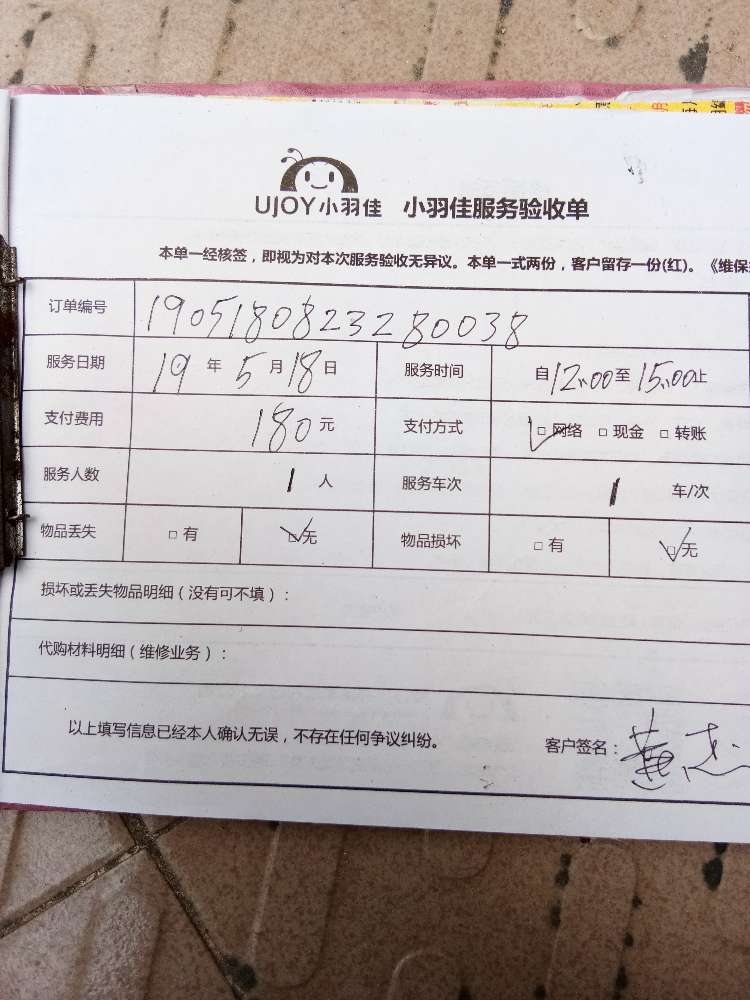 UJOY小羽佳 小羽佳服务验收单
本单一经核签，即视为对本次服务验收无异议。本单一式两份，客户留存一份(红)。《维保
订单编号 19051808232280038
服务日期 19 年 5 月 18 日 服务时间 自 12:00 至 15:00 止
支付费用 180 元 支付方式 □ 网络 □ 现金 □ 转账
服务人数 1 人 服务车次 1 车/次
物品丢失 □ 有 □ 无 物品损坏 □ 有 □ 无
损坏或丢失物品明细（没有可不填）：
代购材料明细（维修业务）：
以上填写信息已经本人确认无误，不存在任何争议纠纷。 客户签名：黄